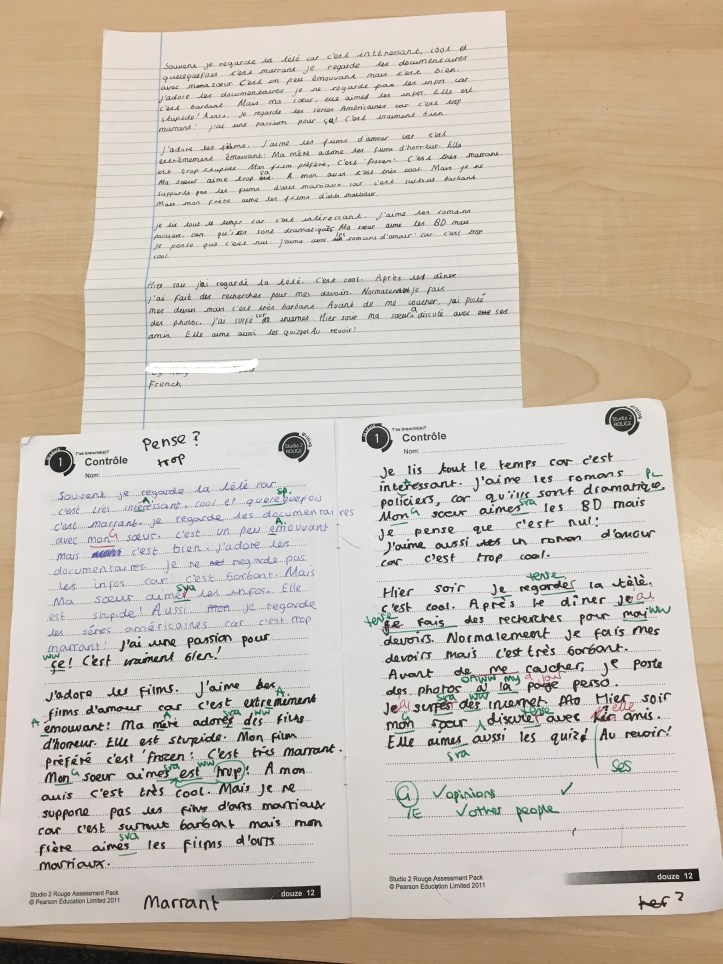 Souvent je regarde la télé car c'est intéressant, cool et
quelequefois c'est marrant je regarde les documentaires
avec mon sœur C'est un peu émouvant mais c'est bien.
J'adore les documentaires je ne regarde pas les infos car
c'est barbant. Mais Ma sœur, elle aimes les infos. Elle est
stupide! Aussi, je regarde les séries Américaines car c'est trop
marrant! J'ai une passion pour ça! C'est vraiment bien
J'adore les films. J'aime les films d'amour car c'est
extrêmement émouvant! Ma mère adore les films d'horreur. Elle
est trop stupide. Mon film préféré, C'est 'Frozen'! C'est très marrant.
Ma sœur aime trop ça. A mon avis c'est très cool. Mais je ne
supporte pas les films d'arts martiaux car c'est surtout barbant
Mais mon frère aime les films d'arts martiaux.
Je lis tout le temps car c'est intéressant. J'aime les romans
policiers, car qu'ils sont dramatiques. Ma sœur aime les BD
je pense que c'est nul. J'aime aussi les romans d'amour car c'est trop
cool.
Hier soir j'ai regardé la télé. C'est cool. Après le dîner
j'ai fait des recherches pour mes devoin. Normalement je fais
mes devoin mais c'est très barbant. Avant de me coucher, j'ai posté
des photos. J'ai surfé sur internet Hier soir ma sœur a discuté avec ses
amis Elle aime aussi les quizzes Au revoir!
French
1
T'es branché(e)?
Contrôle
Nom:
Pense?
trop
Studio 2
ROUGE
Souvent je regarde la télé car
c'est très intéressant, cool et quelequefois
sp.
c'est marrant. je regarde les documentaires
avec mon sœur. c'est un peu émouvant
mais c'est bien. j'adore les
documentaires je ne regarde pas
les infos car c'est barbant. Mais
sva
Ma sœur aimes les infos. Elle
est stupide! Aussi je regarde
les séries américaines car c'est trop
marrant! J'ai une passion pour
ww
ça! C'est vraiment bien!
J'adore les films. J'aime les
films d'amour car c'est extremement
émouvant! Ma mère adores des films
sva ww
d'horreur. Elle est stupide. Mon film
préféré c'est 'frozen'! C'est très marrant.
sva ww
Mon sœur aimes est trop! A mon
avis c'est très cool. Mais je ne
supporte pas les films d'arts martiaux
car c'est surtout barbant mais mon
sva
frère aimes les films d'arts
martiaux.
Studio 2 Rouge Assessment Pack
© Pearson Education Limited 2011
douze 12
Marrant
1
T'es branché(e)?
Contrôle
Nom:
Studio 2
ROUGE
Je lis tout le temps car c'est
intéressant. J'aime les romans
PL
policiers, car qu'ills sont dramatique.
G sva
Mon sœur aimes les BD mais
je pense que c'est nul!
J'aime aussi un roman d'amour
car c'est trop cool.
tense
Hier soir Je regardes la télé.
c'est cool. Après le dîner je j'ai
tense
fais des recherches pour mai ww
devoirs. Normalement je fais mes
devoirs mais c'est très barbant.
Avant de me coucher, je poste
des photos a la page perso.
Je surfes des internet. Hier soir
tense elle
mon sœur discuter avec amis.
Elle aimes aussi les quizé! Au revoir!
sva
ses
G ✓opinions ✓
TE ✓other people
Studio 2 Rouge Assessment Pack
© Pearson Education Limited 2011
douze 12